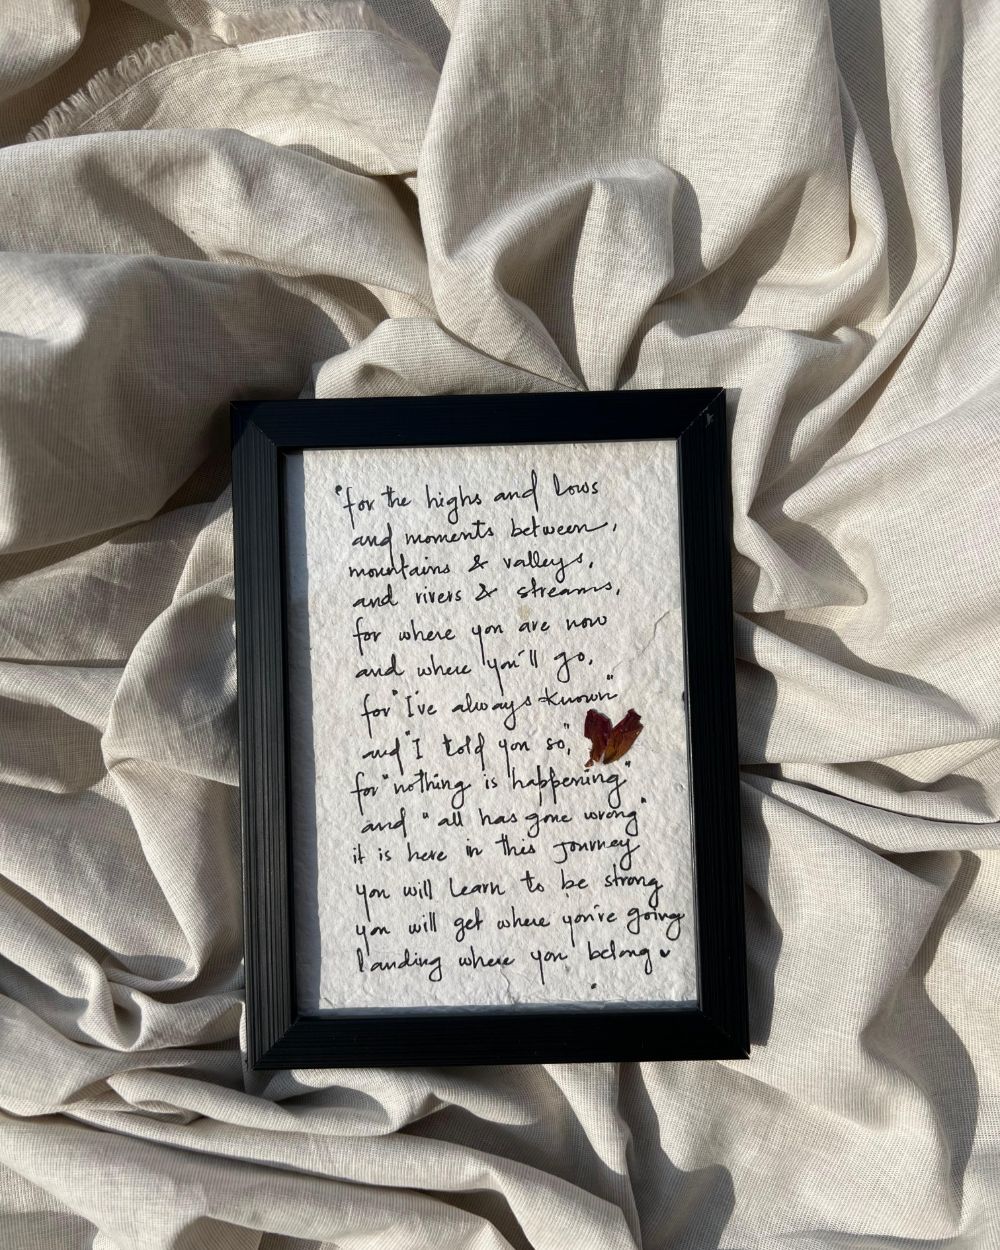 "for the highs and lows
and moments between,
mountains & valleys,
and rivers & streams,
for where you are now
and where you'll go,
for "I've always known"
and "I told you so,"
for "nothing is happening"
and "all has gone wrong"
it is here in this journey
you will learn to be strong
you will get where you're going
landing where you belong ♥